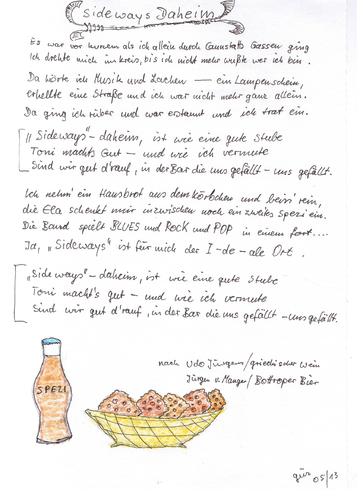 Sideways Daheim
Es war vor kurzem als ich allein durch Cannstatts Gassen ging
Ich drehte mich im kreis, bis ich nicht mehr wußte wer ich bin.
Da hörte ich Musik und Lachen — ein Lampenschein,
erhellte eine Straße und ich war nicht mehr ganz allein.
Da ging ich rüber und war erstaunt und ich trat ein.
„Sideways"-daheim, ist wie eine gute Stube
Toni machts Gut – und wie ich vermute
Sind wir gut d'rauf, in der Bar die uns gefällt – uns gefällt.
Ich nehm' ein Hausbrot aus dem Körbchen und beiss' rein,
die Ela schenkt mir inzwischen noch ein zweites Spezi ein.
Die Band spielt BLUES und ROCK und POP in einem fort....
Ja, „Sideways" ist für mich der I-de-ale Ort.
„Sideways"-daheim, ist wie eine gute Stube
Toni macht's gut – und wie ich vermute
Sind wir gut d'rauf, in der Bar die uns gefällt – uns gefällt.
nach Udo Jürgens/griechischer Wein
Jürgen v. Manger/Bottroper Bier
SPEZI
05/13